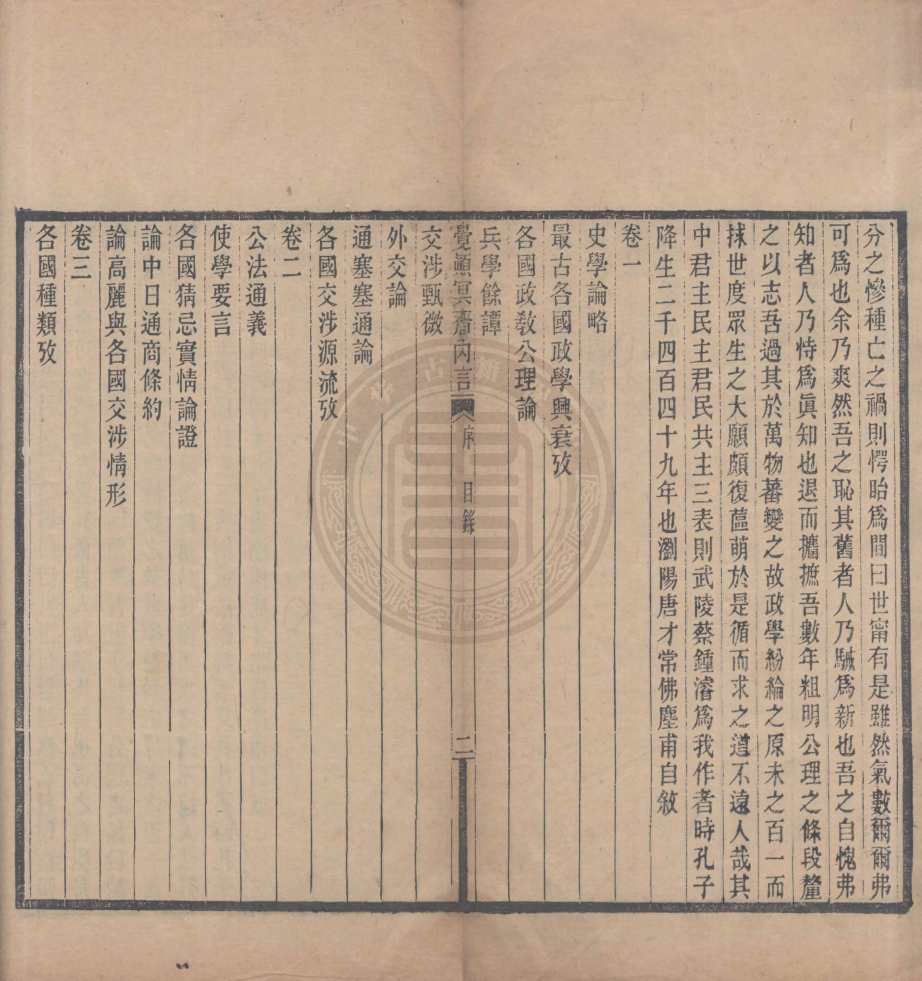 分之慘種亡之禍則愕眙爲間曰世甯有是雖然氣數爾爾弗
可爲也余乃爽然吾之恥其舊者人乃駴爲新也吾之自愧弗
知者人乃恃爲眞知也退而攟摭吾數年粗明公理之條段釐
之以志吾過其於萬物蕃變之故政學紛綸之原未之百一而
抹世度眾生之大願頗復蕴萌於是循而求之道不遠人哉其
中君主民主君民共主三表則武陵蔡鍾濬爲我作者時孔子
降生二千四百四十九年也瀏陽唐才常佛塵甫自敘
卷一
史學論略
最古各國政學興衰攷
各國政敎公理論
兵學餘譚
覺顚冥齋內言 序 目錄 二
交涉甄微
外交論
通塞塞通論
各國交涉源流攷
卷二
公法通義
使學要言
各國猜忌實情論證
論中日通商條約
論高麗與各國交涉情形
卷三
各國種類攷